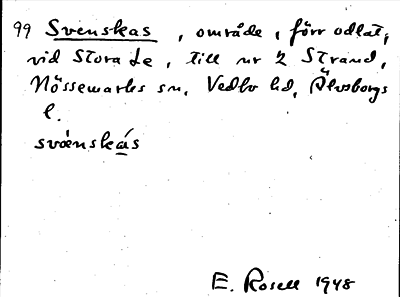 99 Svenskas, område, förr odlat,
vid Stora Le, till nr 2 Strand,
Nössemarks sn, Vedbo hd, Älvsborgs
l.
svænskás
E. Rosell 1948